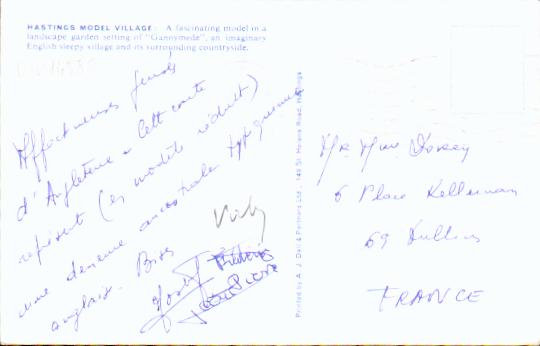 HASTINGS MODEL VILLAGE: A fascinating model in a
landscape garden setting of "Gannymede", an imaginary
English sleepy village and its surrounding countryside.
Affectueuses pensées
d'Angleterre. Cette carte
représent (en modèle réduit)
une demeure ancestrale typiquement
anglaise. Bises
Vicky
Printed by A. J. Dell & Partners Ltd., 149 St. Helens Road, Hastings
Mr Mme
6 Place Kellerman
69
FRANCE